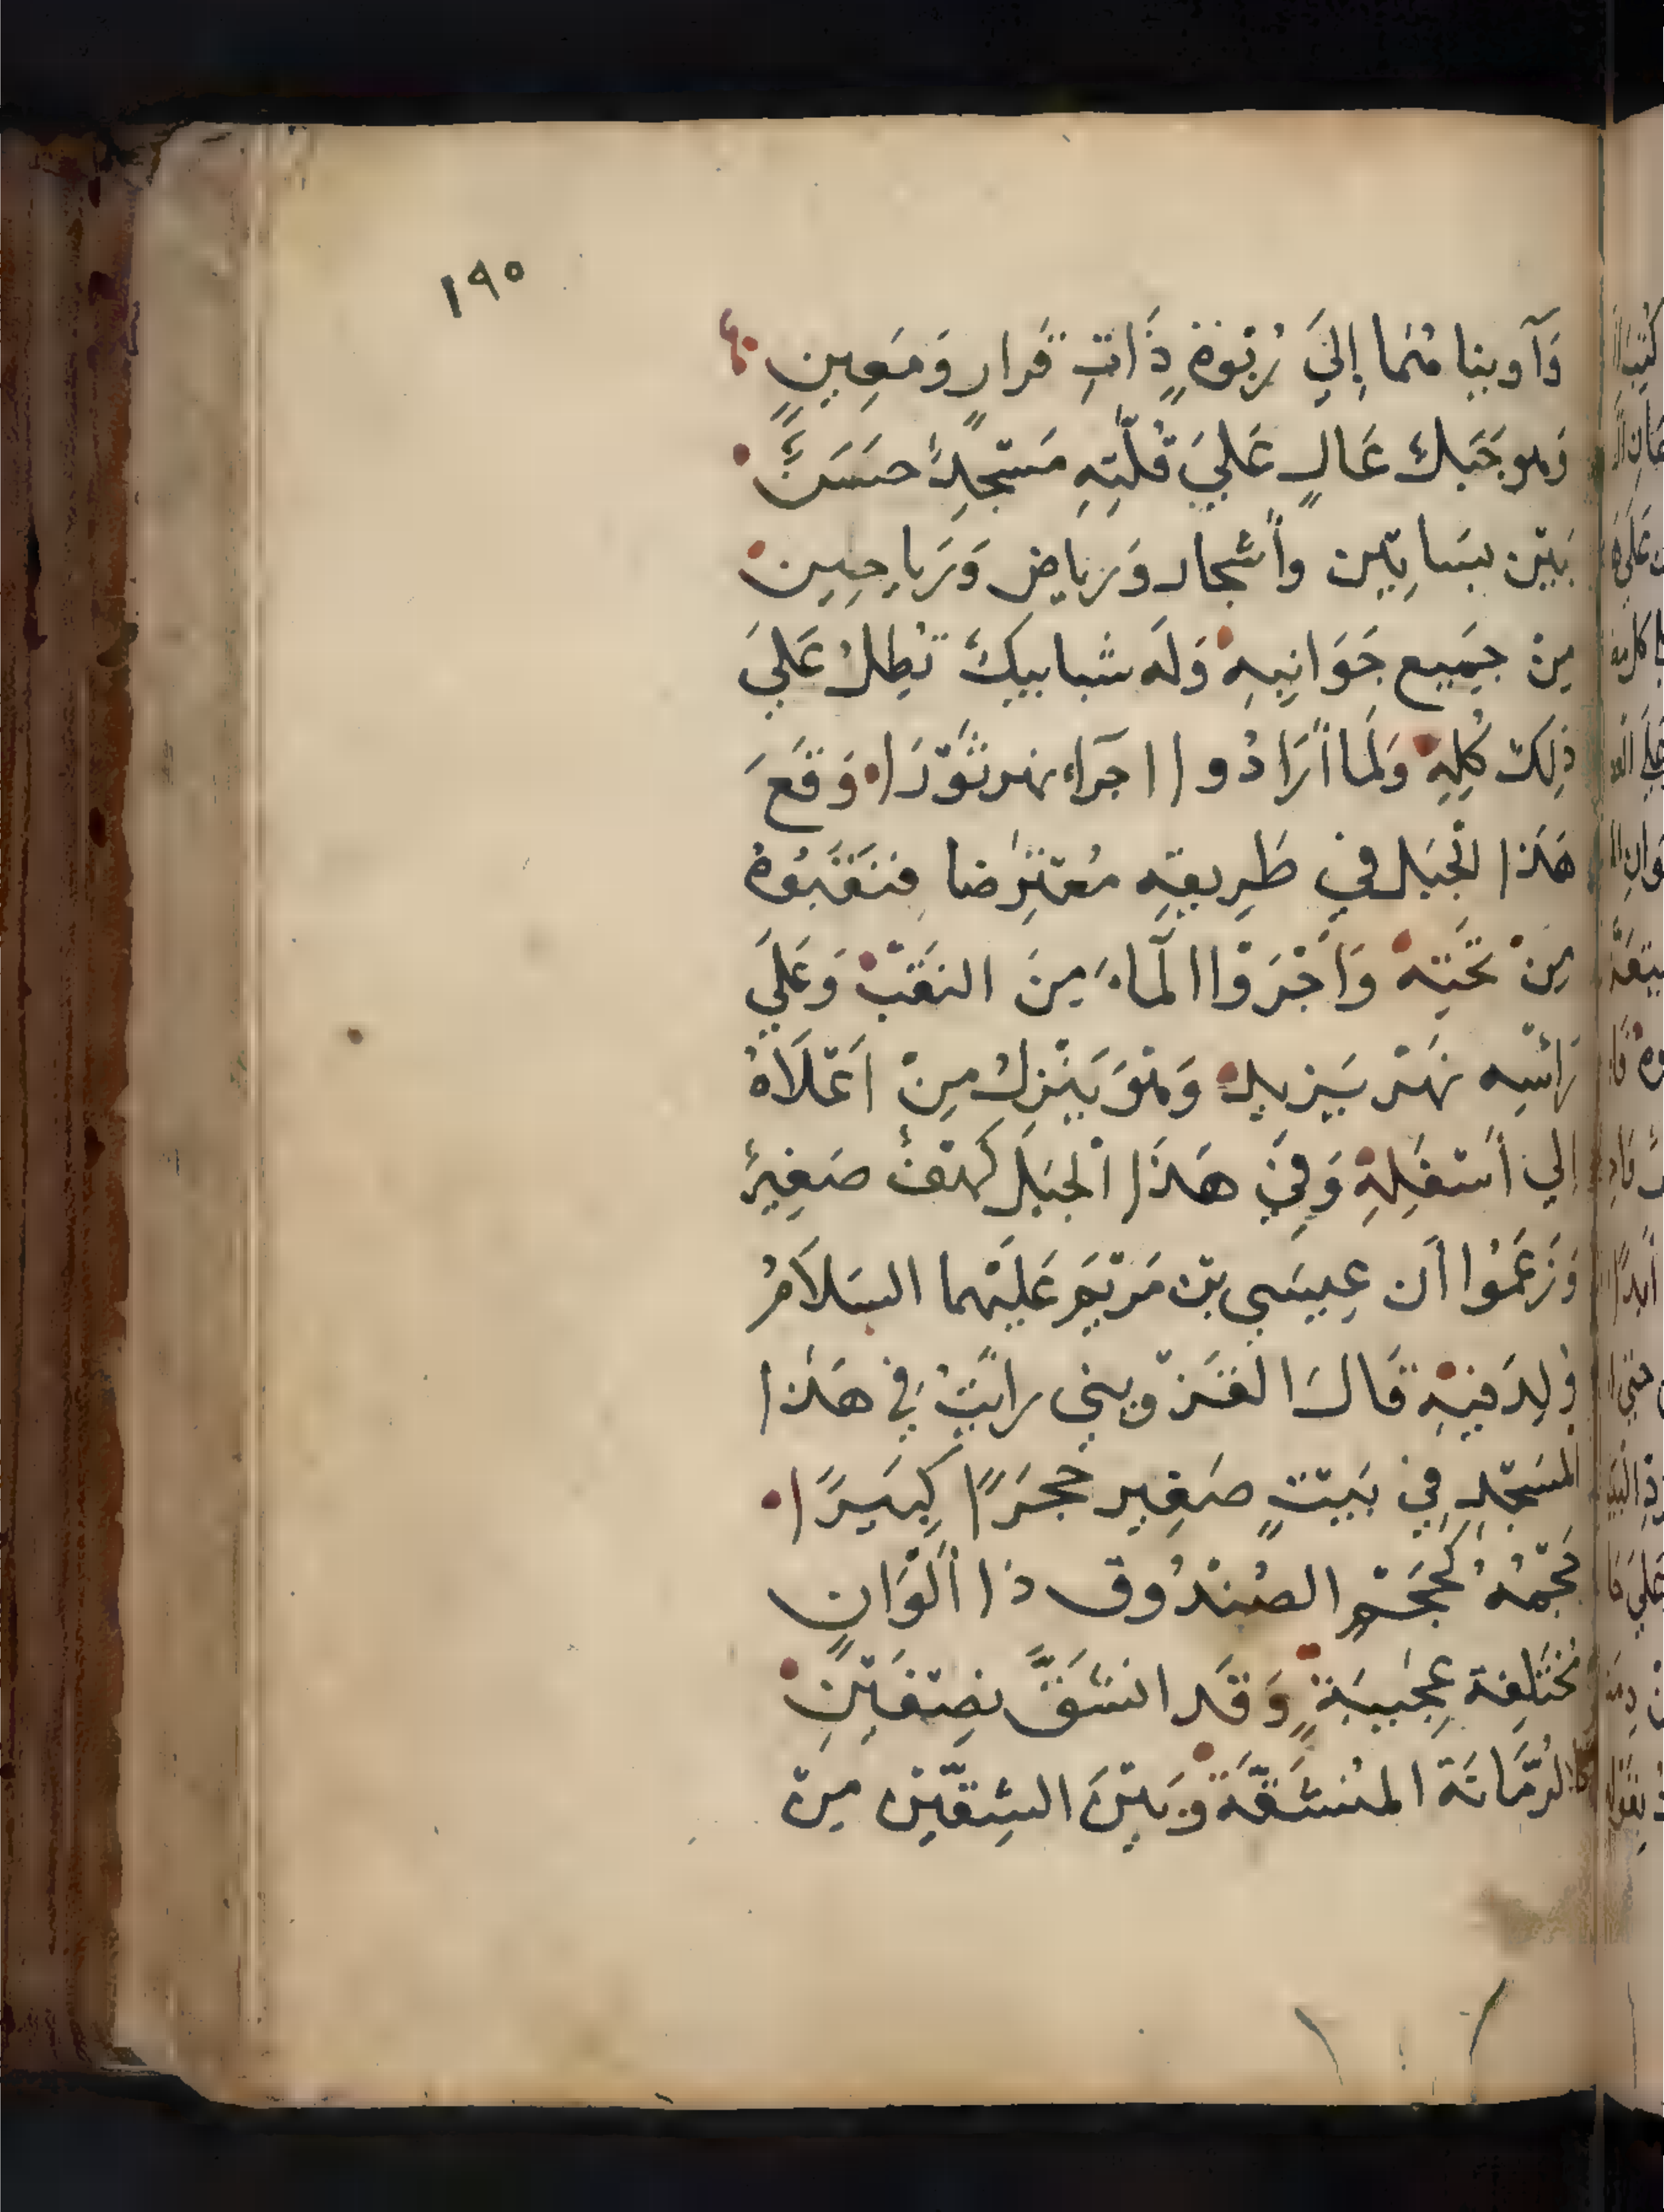 ١٩٥
وَآوينا هُمَا إِليَ رُبْوَةٍ ذَاتِ قَرارٍ وَمَعِينٍ
وَهو جَبَل عَالٍ عَليَ قُلَّتِهِ مَسْجِدٌ حسَنٌ
بَيْن بسَاتِين وأَشجار وَرياض وَرَياحِين
مِنْ جمَيع جَوَانِبِهِ وَلَه شبابيكَ تُطِلُ عَليَ
ذلِكَ كُلِهِ وَلَما أَرَادُوا اجرآء نهر ثَوْرَا وَقَعَ
هَذا الْجبَل في طَرِيقِهِ مُعْتَرِضا فنَقَبُوهُ
مِنْ تَحْتِهْ وَأَجْرَوْا الْمآءَ مِنَ النَقْبْ وَعَليَ
رَاسِه نَهْر يَزيد وَهْوَ يَنْزِلُ مِنْ اَعْلَاهُ
إلي أسْفَلِهِ وَفِيَ هَذَا الْجبَل كَهْفٌ صَغِيرٌ
وَزَعَمُوا أَن عِيسَي بْن مَرْيَمَ عَليَهْما السَلَامُ
وُلِدَ فيْهِ قَالَ القَزْويني رايَتُ فِي هَذا
المَسْجِدِ فِي بَيْتٍ صَغِير حَجَرًا كِبَيرًا
حَجْمُهُ كَحَجْمِ الصُنْدُوق ذا أَلَوَانٍ
مُخْتَلِفة عِجَيبَةٍ وَقَد انشَقَّ نِصْفَيْنِ
كالرُمَّانَة المُنشَقَّةَ وَبَيْنَ الشِقَّيْن مِنْ